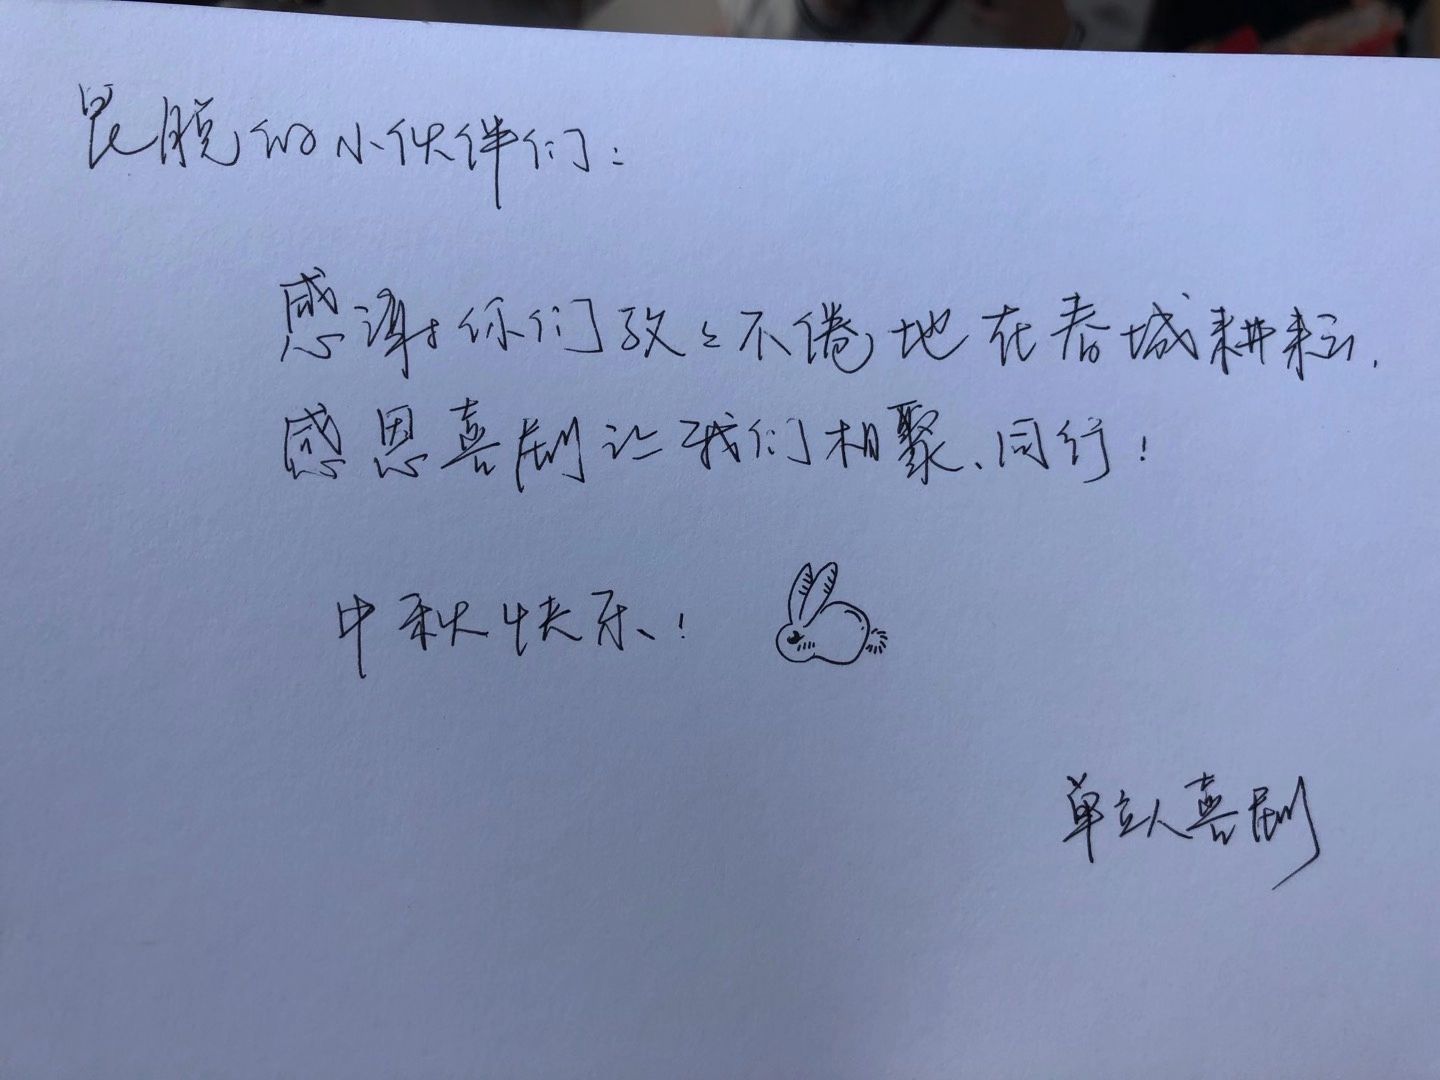 昆脱的小伙伴们：
感谢你们孜々不倦地在春城耕耘，
感恩喜剧让我们相聚、同行！
中秋快乐！
单立人喜剧